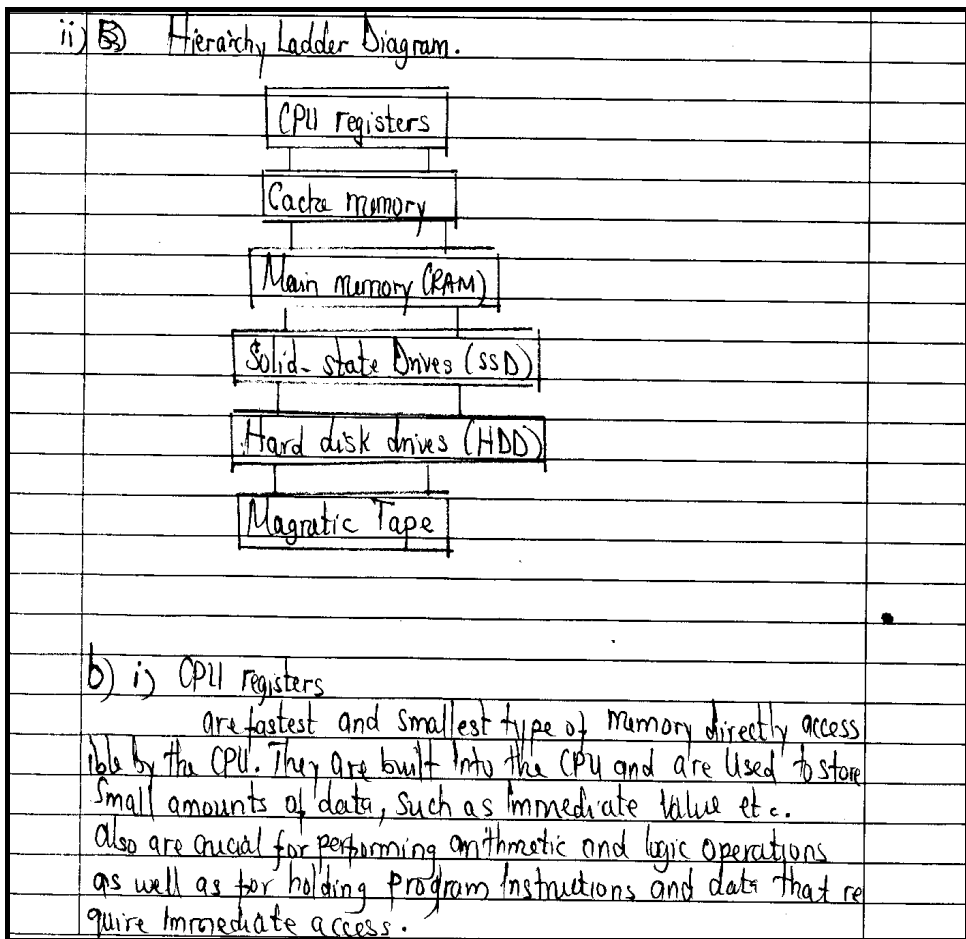 ii) B) Hierarchy Ladder Diagram.
CPU registers
Cache memory
Main memory (RAM)
Solid-state Drives (SSD)
Hard disk drives (HDD)
Magnetic Tape
b) i) CPU registers
are fastest and smallest type of memory directly access
ible by the CPU. They are built into the CPU and are used to store
small amounts of data, such as immediate value etc.
also are crucial for performing arithmetic and logic operations
as well as for holding program instructions and data that re
quire immediate access.